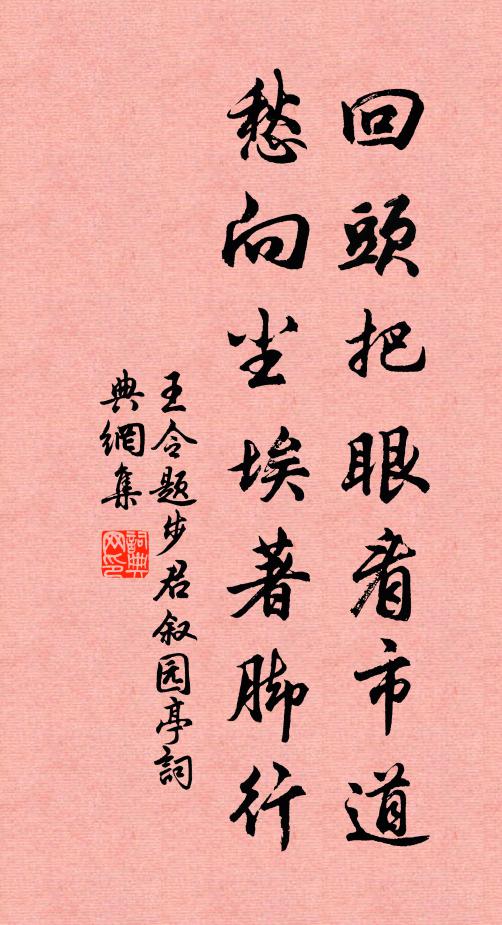 回頭把眼看市道
愁向尘埃著脚行
王令题步君叙园亭詞
典網集
詞典
网印